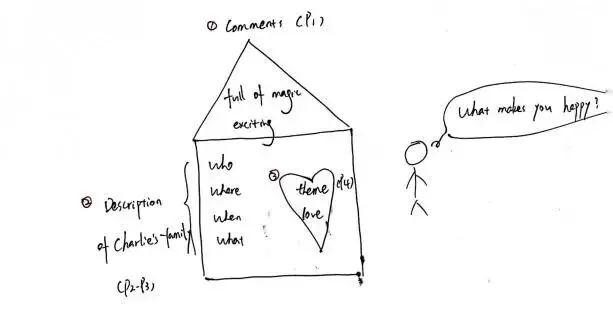 ① Comments (P1)
full of magic
exciting
② Description
of Charlie's family
(P2-P3)
who
where
when
what
③ theme (P4)
love
What makes you happy?